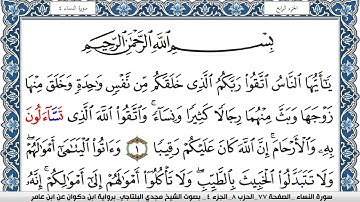 الجزء الرابع سورة النساء ٤
بِسْمِ ٱللَّهِ ٱلرَّحْمَٰنِ ٱلرَّحِيمِ
يَٰٓأَيُّهَا ٱلنَّاسُ ٱتَّقُوا۟ رَبَّكُمُ ٱلَّذِى خَلَقَكُم مِّن نَّفْسٍ وَٰحِدَةٍ وَخَلَقَ مِنْهَا
زَوْجَهَا وَبَثَّ مِنْهُمَا رِجَالًا كَثِيرًا وَنِسَآءً ۚ وَٱتَّقُوا۟ ٱللَّهَ ٱلَّذِى تَسَّآءَلُونَ
بِهِۦ وَٱلْأَرْحَامَ ۚ إِنَّ ٱللَّهَ كَانَ عَلَيْكُمْ رَقِيبًا ١ وَءَاتُوا۟ ٱلْيَتَٰمَىٰٓ أَمْوَٰلَهُمْ ۖ
وَلَا تَتَبَدَّلُوا۟ ٱلْخَبِيثَ بِٱلطَّيِّبِ ۖ وَلَا تَأْكُلُوٓا۟ أَمْوَٰلَهُمْ إِلَىٰٓ أَمْوَٰلِكُمْ ۚ إِنَّهُۥ
سورة النساء _ الصفحة ٧٧ الحزب ٨ الجزء ٤ _ بصوت الشيخ مجدي البلتاجي _ برواية ابن ذكوان عن ابن عامر